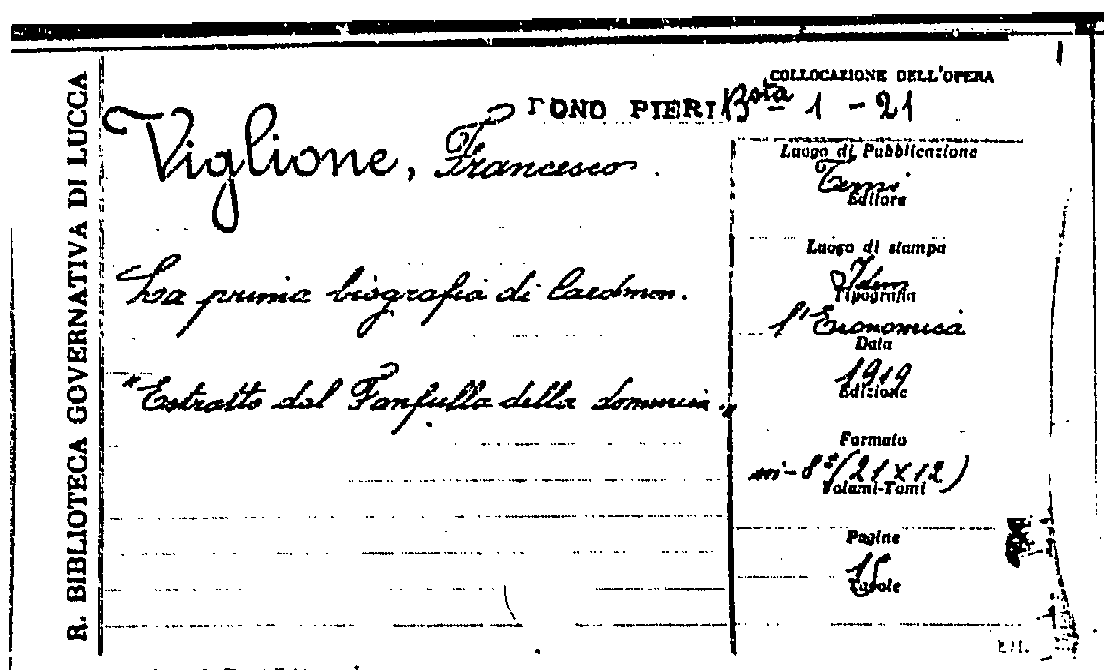 R. BIBLIOTECA GOVERNATIVA DI LUCCA
COLLOCAZIONE DELL'OPERA
DONO PIERI Bsta 1 - 21
Viglione, Francesco.
La prima biografia di Caedmon.
"Estratto dal Fanfulla della domenica."
Luogo di Pubblicazione
Editore
Luogo di stampa
Idem
Tipografia
l'Economica
Data
1919
Edizione
Formato
in-8° (21x12)
Volumi-Tomi
Pagine
15
Tavole